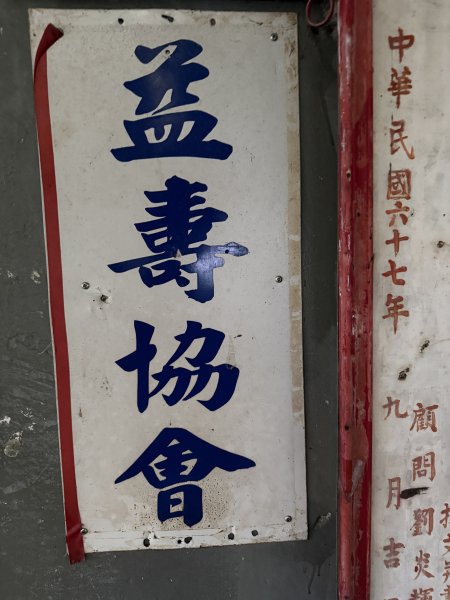 益壽協會
中華民國六十七年 九月吉
顧問劉炎輝